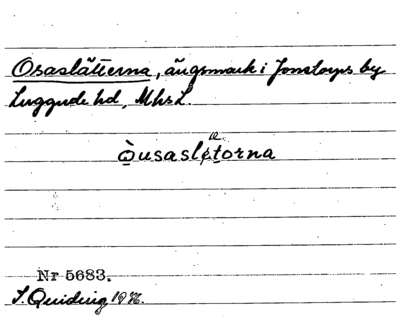 Osaslätterna, ängsmark i Jonstorps by
Luggude hd, Mhs L.
æ
òusaslétorna
Nr 5683.
S. Quiding 1876.